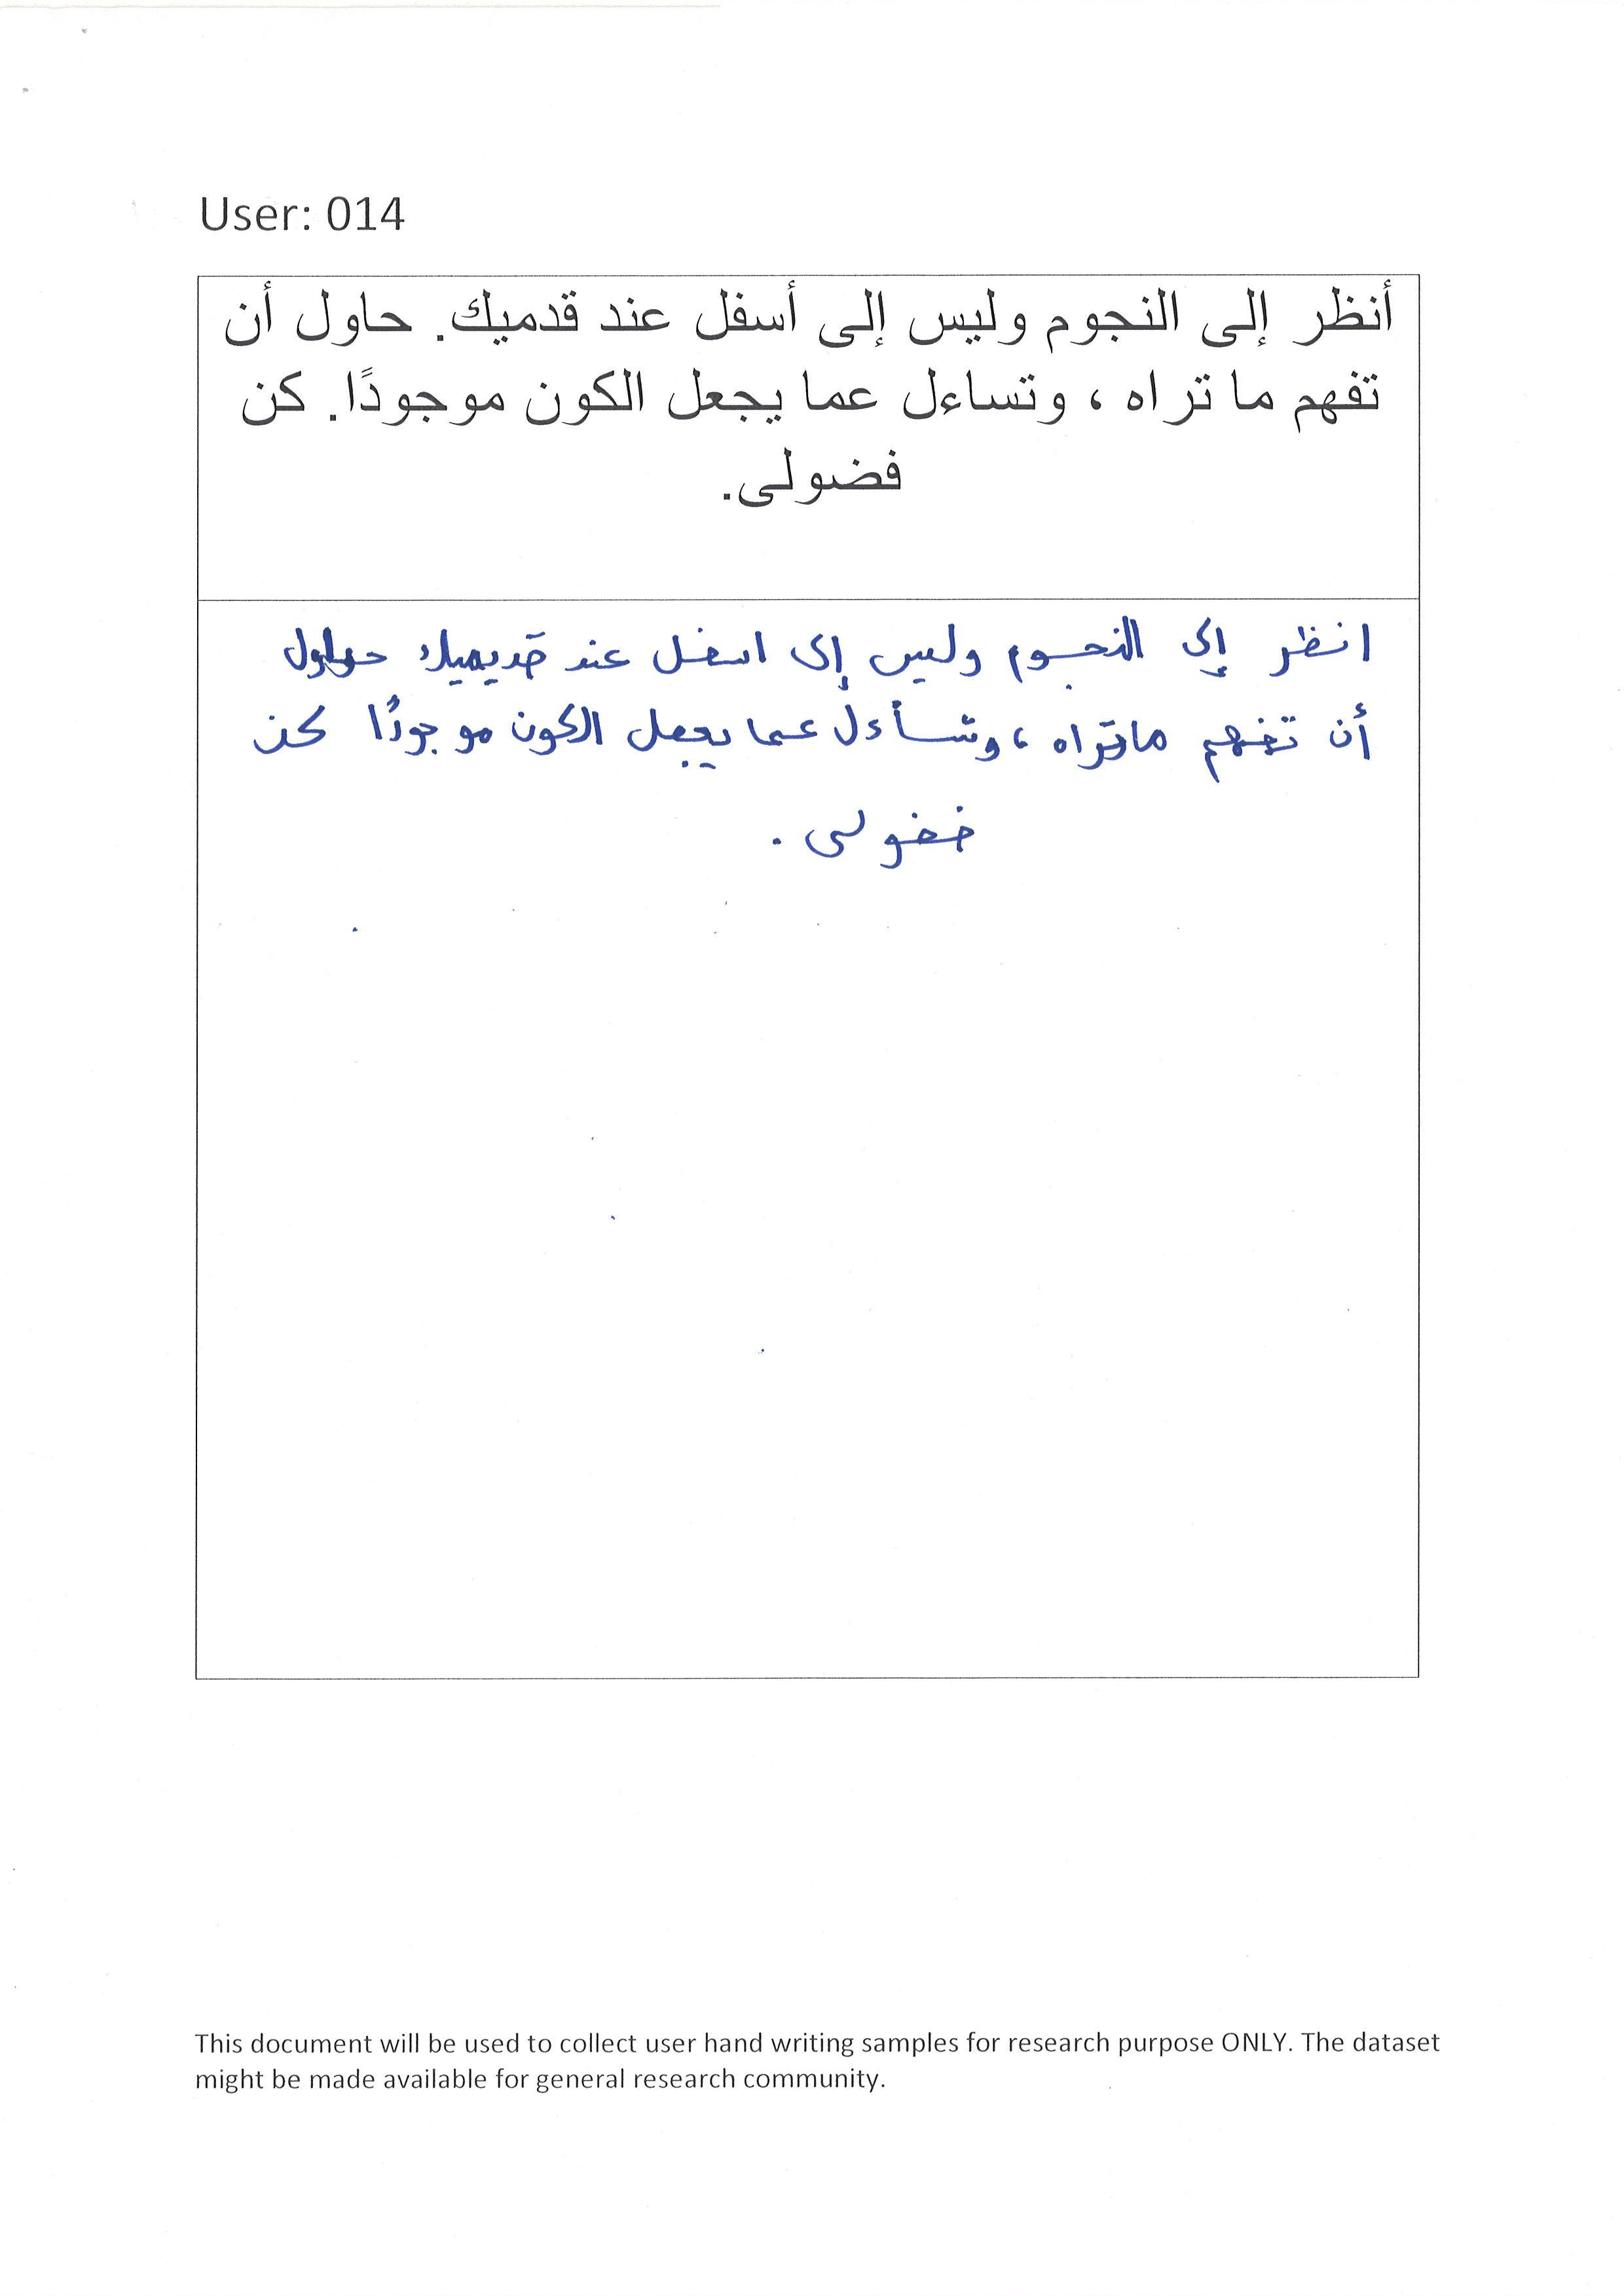 User: 014
أنظر إلى النجوم وليس إلى أسفل عند قدميك. حاول أن
تفهم ما تراه ، وتساءل عما يجعل الكون موجودًا. كن
فضولى.
انظر إلى النجوم وليس إلى اسفل عند قديميك حاول
أن تفهم ماتراه ، وتسأءل عما يجعل الكون موجودًا كن
فضولى .
This document will be used to collect user hand writing samples for research purpose ONLY. The dataset
might be made available for general research community.